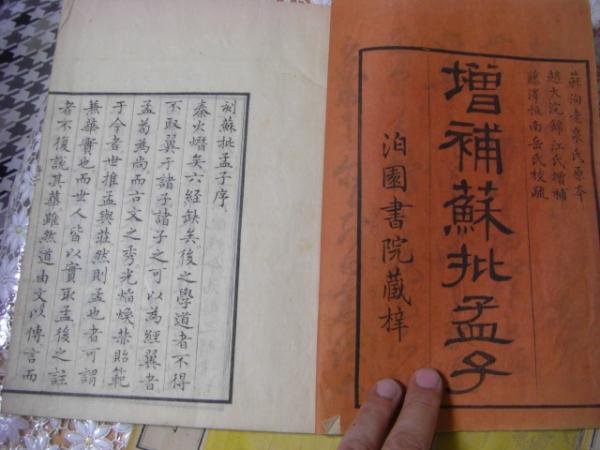 蘇洵老泉氏原本
趙大浣錦江氏增補
藤澤恒南岳氏校疏
增補蘇批孟子
泊園書院藏梓
刻蘇批孟子序
秦火熸矣六經缺矣後之學道者不得
不取翼于諸子諸子之可以為經翼者
孟荀為尚而古文之秀光焰煥貽範
于今者世推孟與莊然則孟也者可謂
兼華實也而世人皆以實取孟後之註
者不復說其華雖然道由文以傳言而